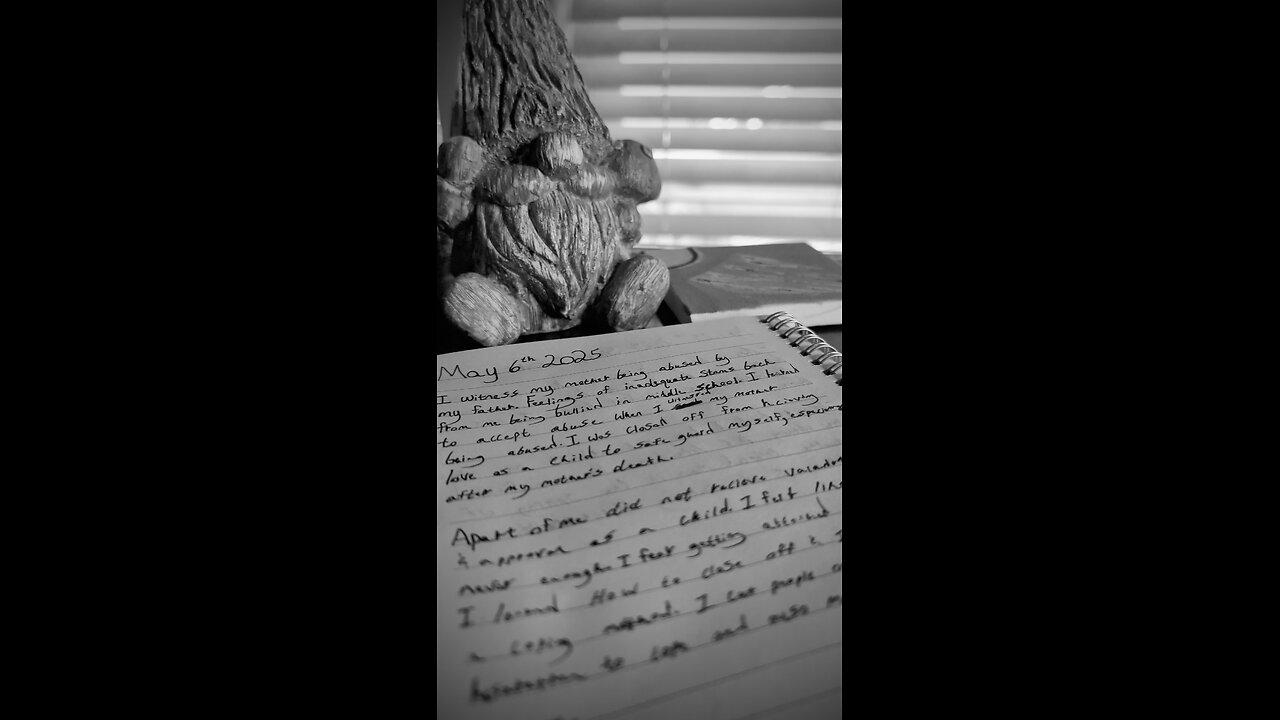 May 6th 2025
I witness my mother being abused by
my father. Feelings of inadequate stams back
from me being bullied in middle school. I learned
to accept abuse when I witness my mother
being abused. I was closed off from
love as a child to safe guard myself, especially
after my mother's death.
Apart of me did not recieve
& approval as a child. I felt like
never enough. I fear getting attached
I learned How to close off & I
a coping I cut people
to cope and also